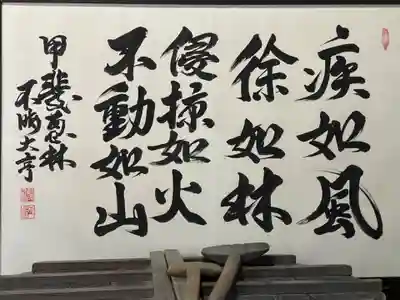 疾如風
徐如林
侵掠如火
不動如山
甲斐惠林
不臨大亨